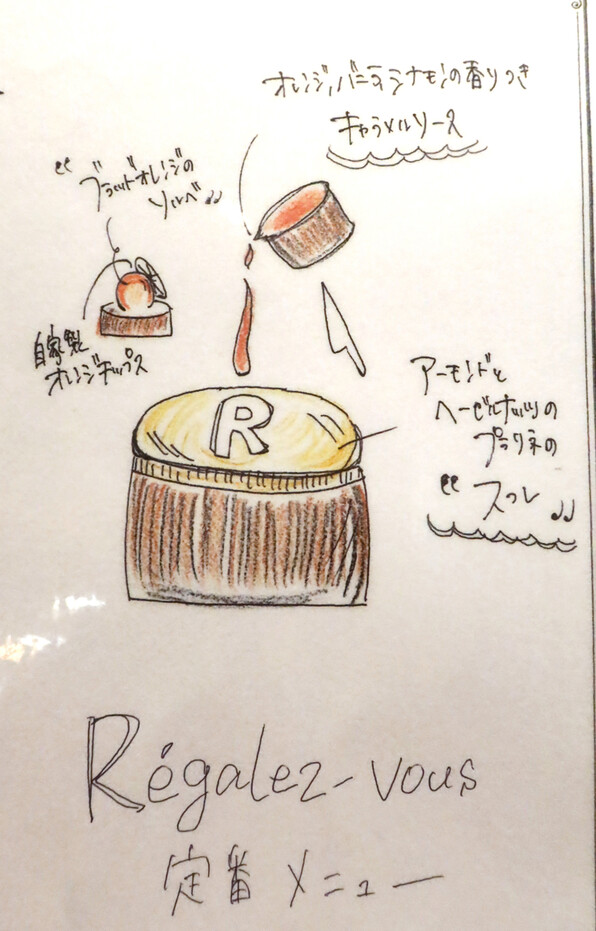 オレンジ,バニラ,シナモンの香りつき
キャラメルソース
"ブラッドオレンジの
ソルベ"
自家製
オレンジチップス
R
アーモンドと
ヘーゼルナッツの
プラリネの
"スフレ"
Régalez-vous
定番メニュー